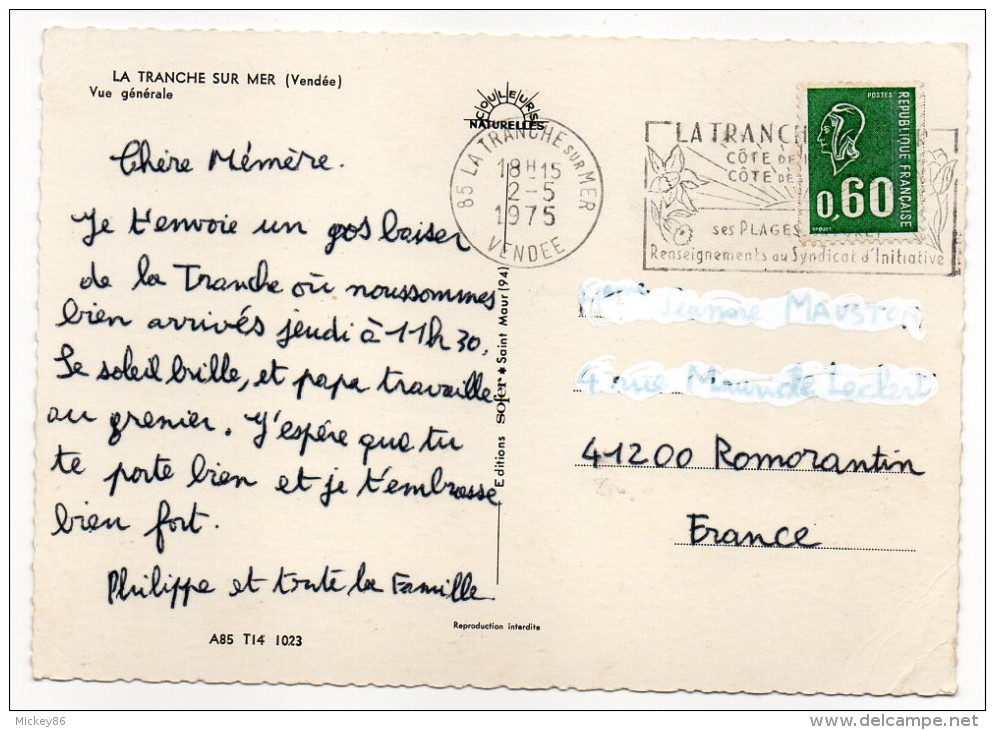 LA TRANCHE SUR MER (Vendée)
Vue générale
COULEURS
NATURELLES
85 LA TRANCHE SUR MER
18H15
2-5
1975
VENDEE
LA TRANCH
CÔTE DE
CÔTE DE
ses PLAGES
Renseignements au Syndicat d'Initiative
POSTES
REPUBLIQUE FRANÇAISE
0,60
Chère Mémère.
Je t'envoie un gos baiser
de la Tranche où noussommes
bien arrivés jeudi à 11h 30.
Le soleil brille, et papa travaille
au grenier. J'espère que tu
te porte bien et je t'embrasse
bien fort.
Philippe et toute la Famille.
Editions sofer * Saint Maur (94)
MAUSTON
4 rue Leclert
41200 Romorantin
France
Reproduction interdite
A85 T14 1023
Mickey86
www.delcampe.net